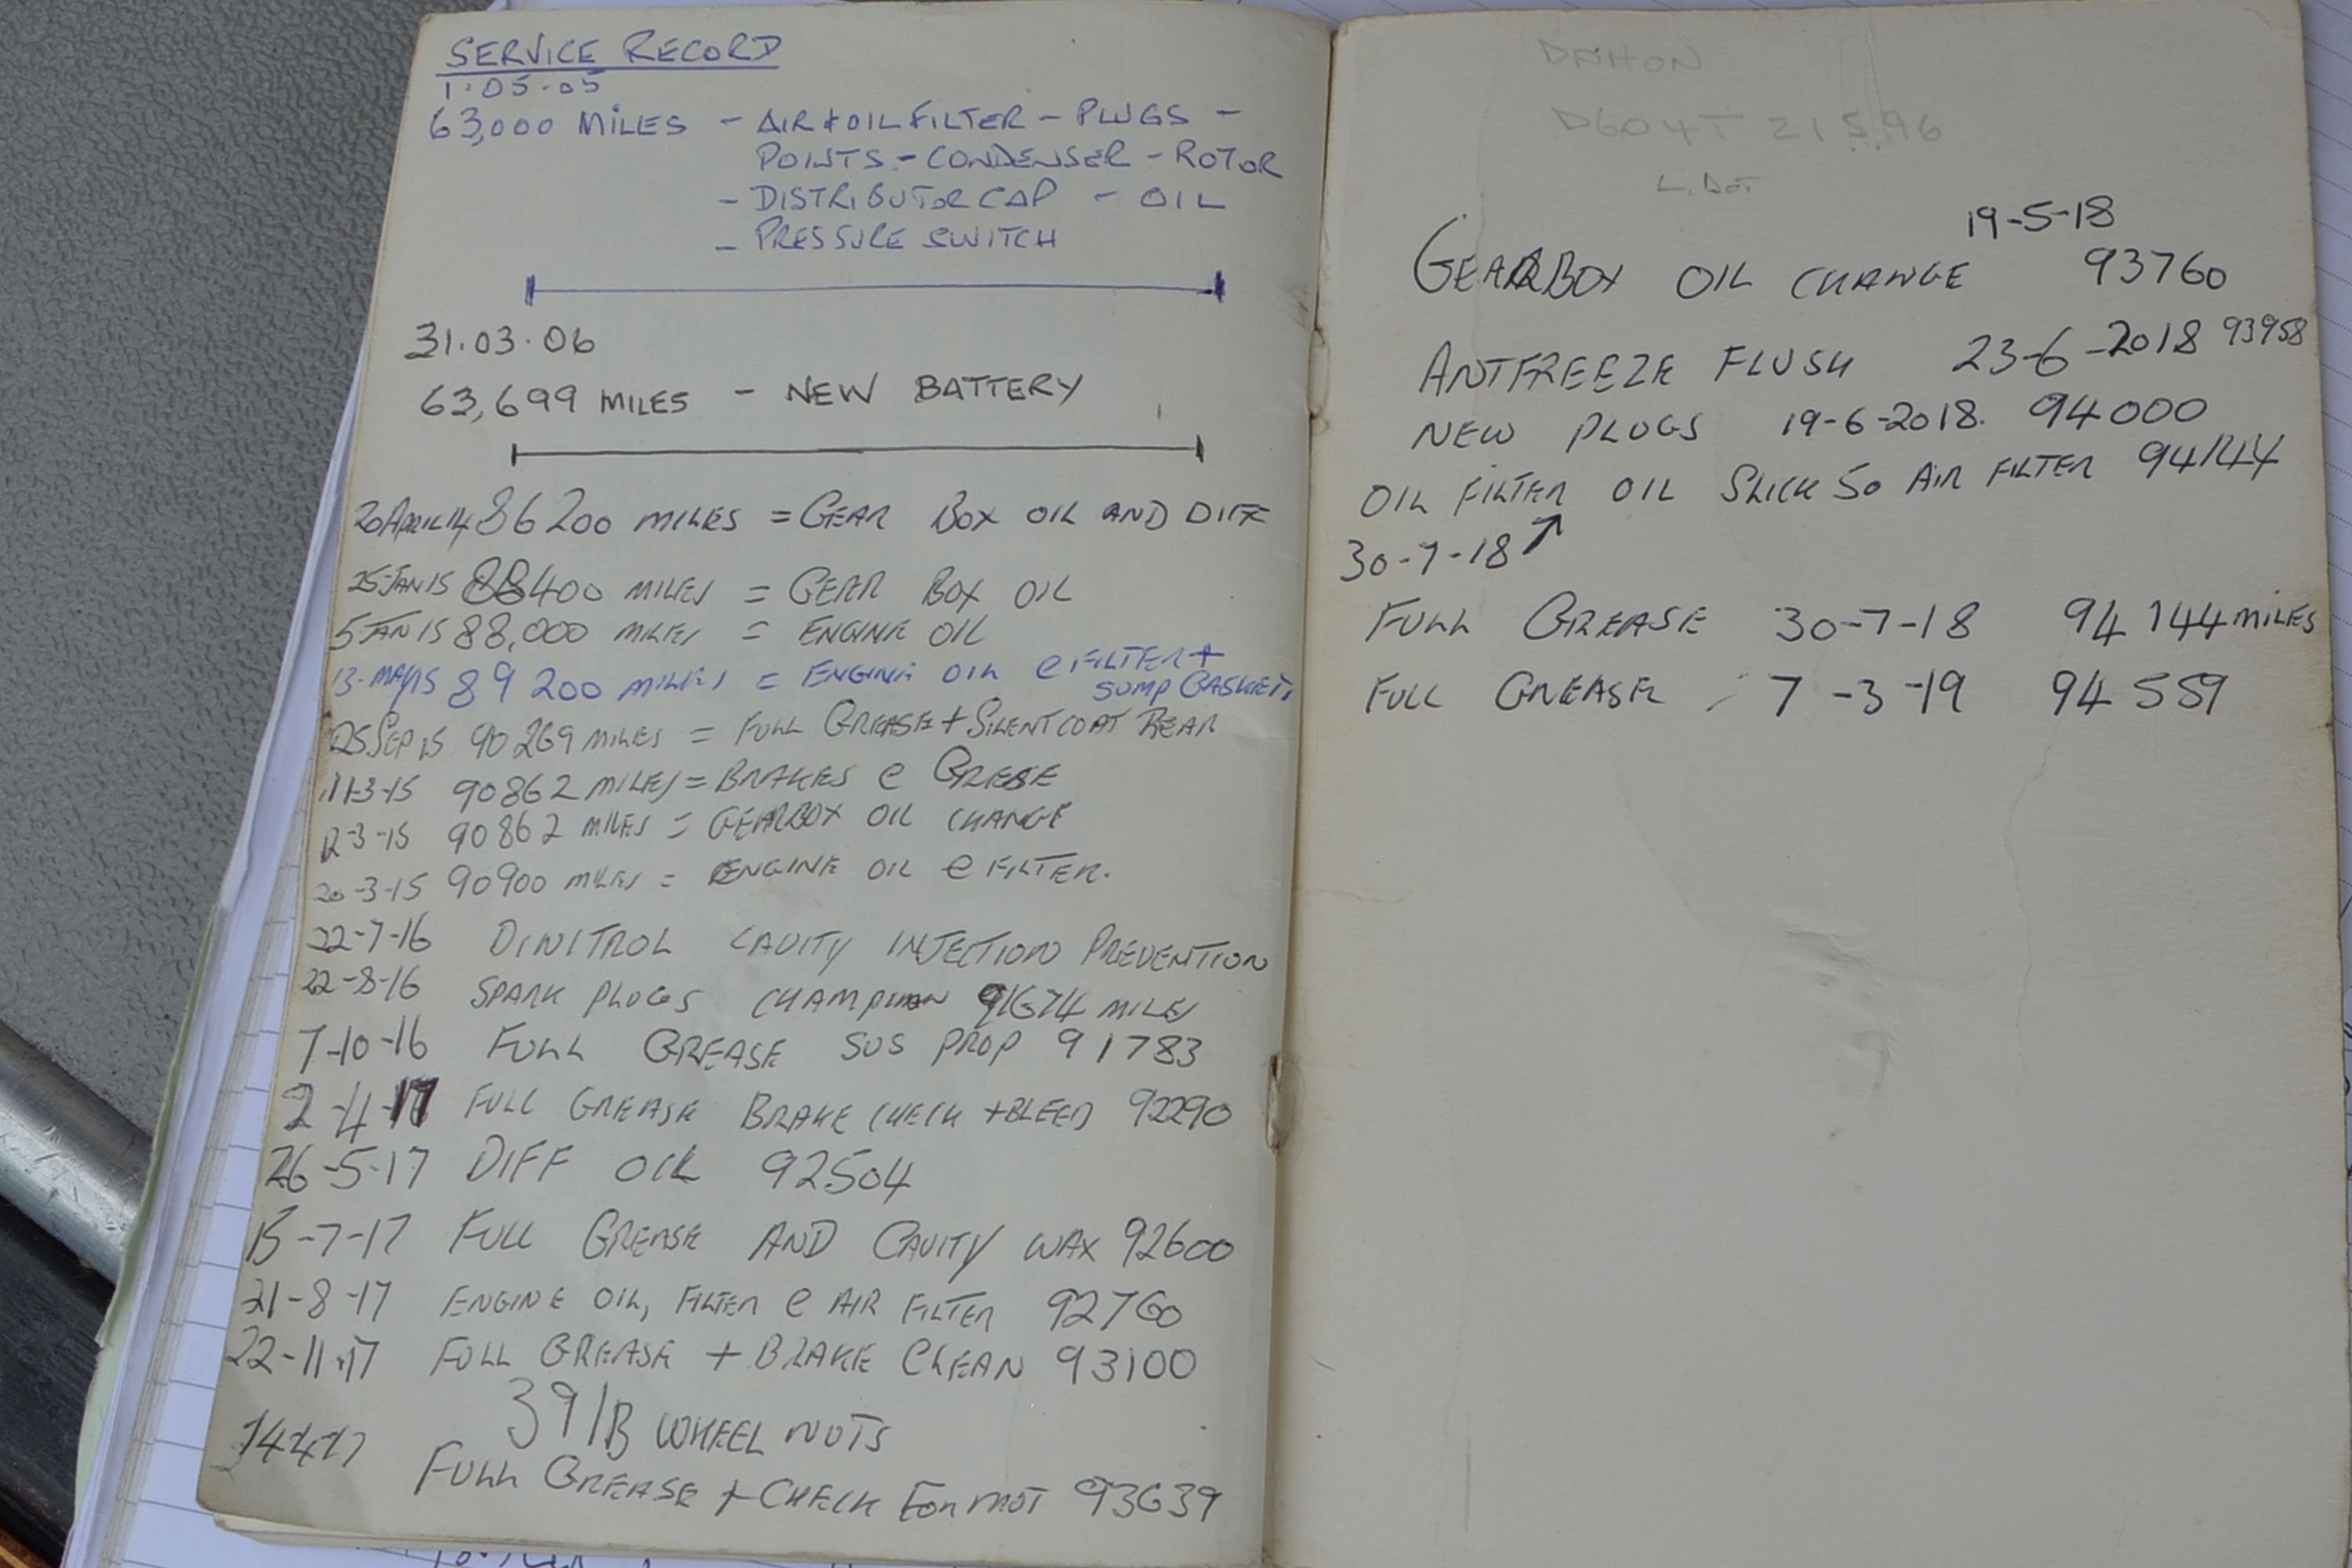 SERVICE RECORD
1.05.05
63,000 MILES - AIR & OIL FILTER - PLUGS -
POINTS - CONDENSER - ROTOR
- DISTRIBUTOR CAP - OIL
- PRESSURE SWITCH
31.03.06
63,699 MILES - NEW BATTERY
20 APRIL 14 86200 MILES = GEAR BOX OIL AND DIFF
25 JAN 15 88400 MILES = GEAR BOX OIL
5 JAN 15 88,000 MILES = ENGINE OIL
13-MAY 15 89200 MILES = ENGINE OIL e FILTER +
SUMP GASKET
25 SEP 15 90269 MILES = FULL GREASE + SILENT COAT REAR
11-3-15 90862 MILES = BRAKES e GREASE
12-3-15 90862 MILES = GEARBOX OIL CHANGE
20-3-15 90900 MILES = ENGINE OIL e FILTER.
22-7-16 DINITROL CAVITY INJECTION PREVENTION
22-8-16 SPARK PLUGS CHAMPION 91674 MILES
7-10-16 FULL GREASE SUS PROP 91783
2-4-17 FULL GREASE BRAKE CHECK + BLEED 92290
26-5-17 DIFF OIL 92504
15-7-17 FULL GREASE AND CAVITY WAX 92600
21-8-17 ENGINE OIL, FILTER e AIR FILTER 92760
22-11-17 FULL GREASE + BRAKE CLEAN 93100
39 lB WHEEL NUTS
FULL GREASE + CHECK FOR MOT 93639
D604T 21596
19-5-18
GEARBOX OIL CHANGE 93760
ANTFREEZE FLUSH 23-6-2018 93958
NEW PLUGS 19-6-2018. 94000
OIL FILTER OIL SLICK 50 AIR FILTER 94144
30-7-18
FULL GREASE 30-7-18 94144 MILES
FULL GREASE 7-3-19 94559